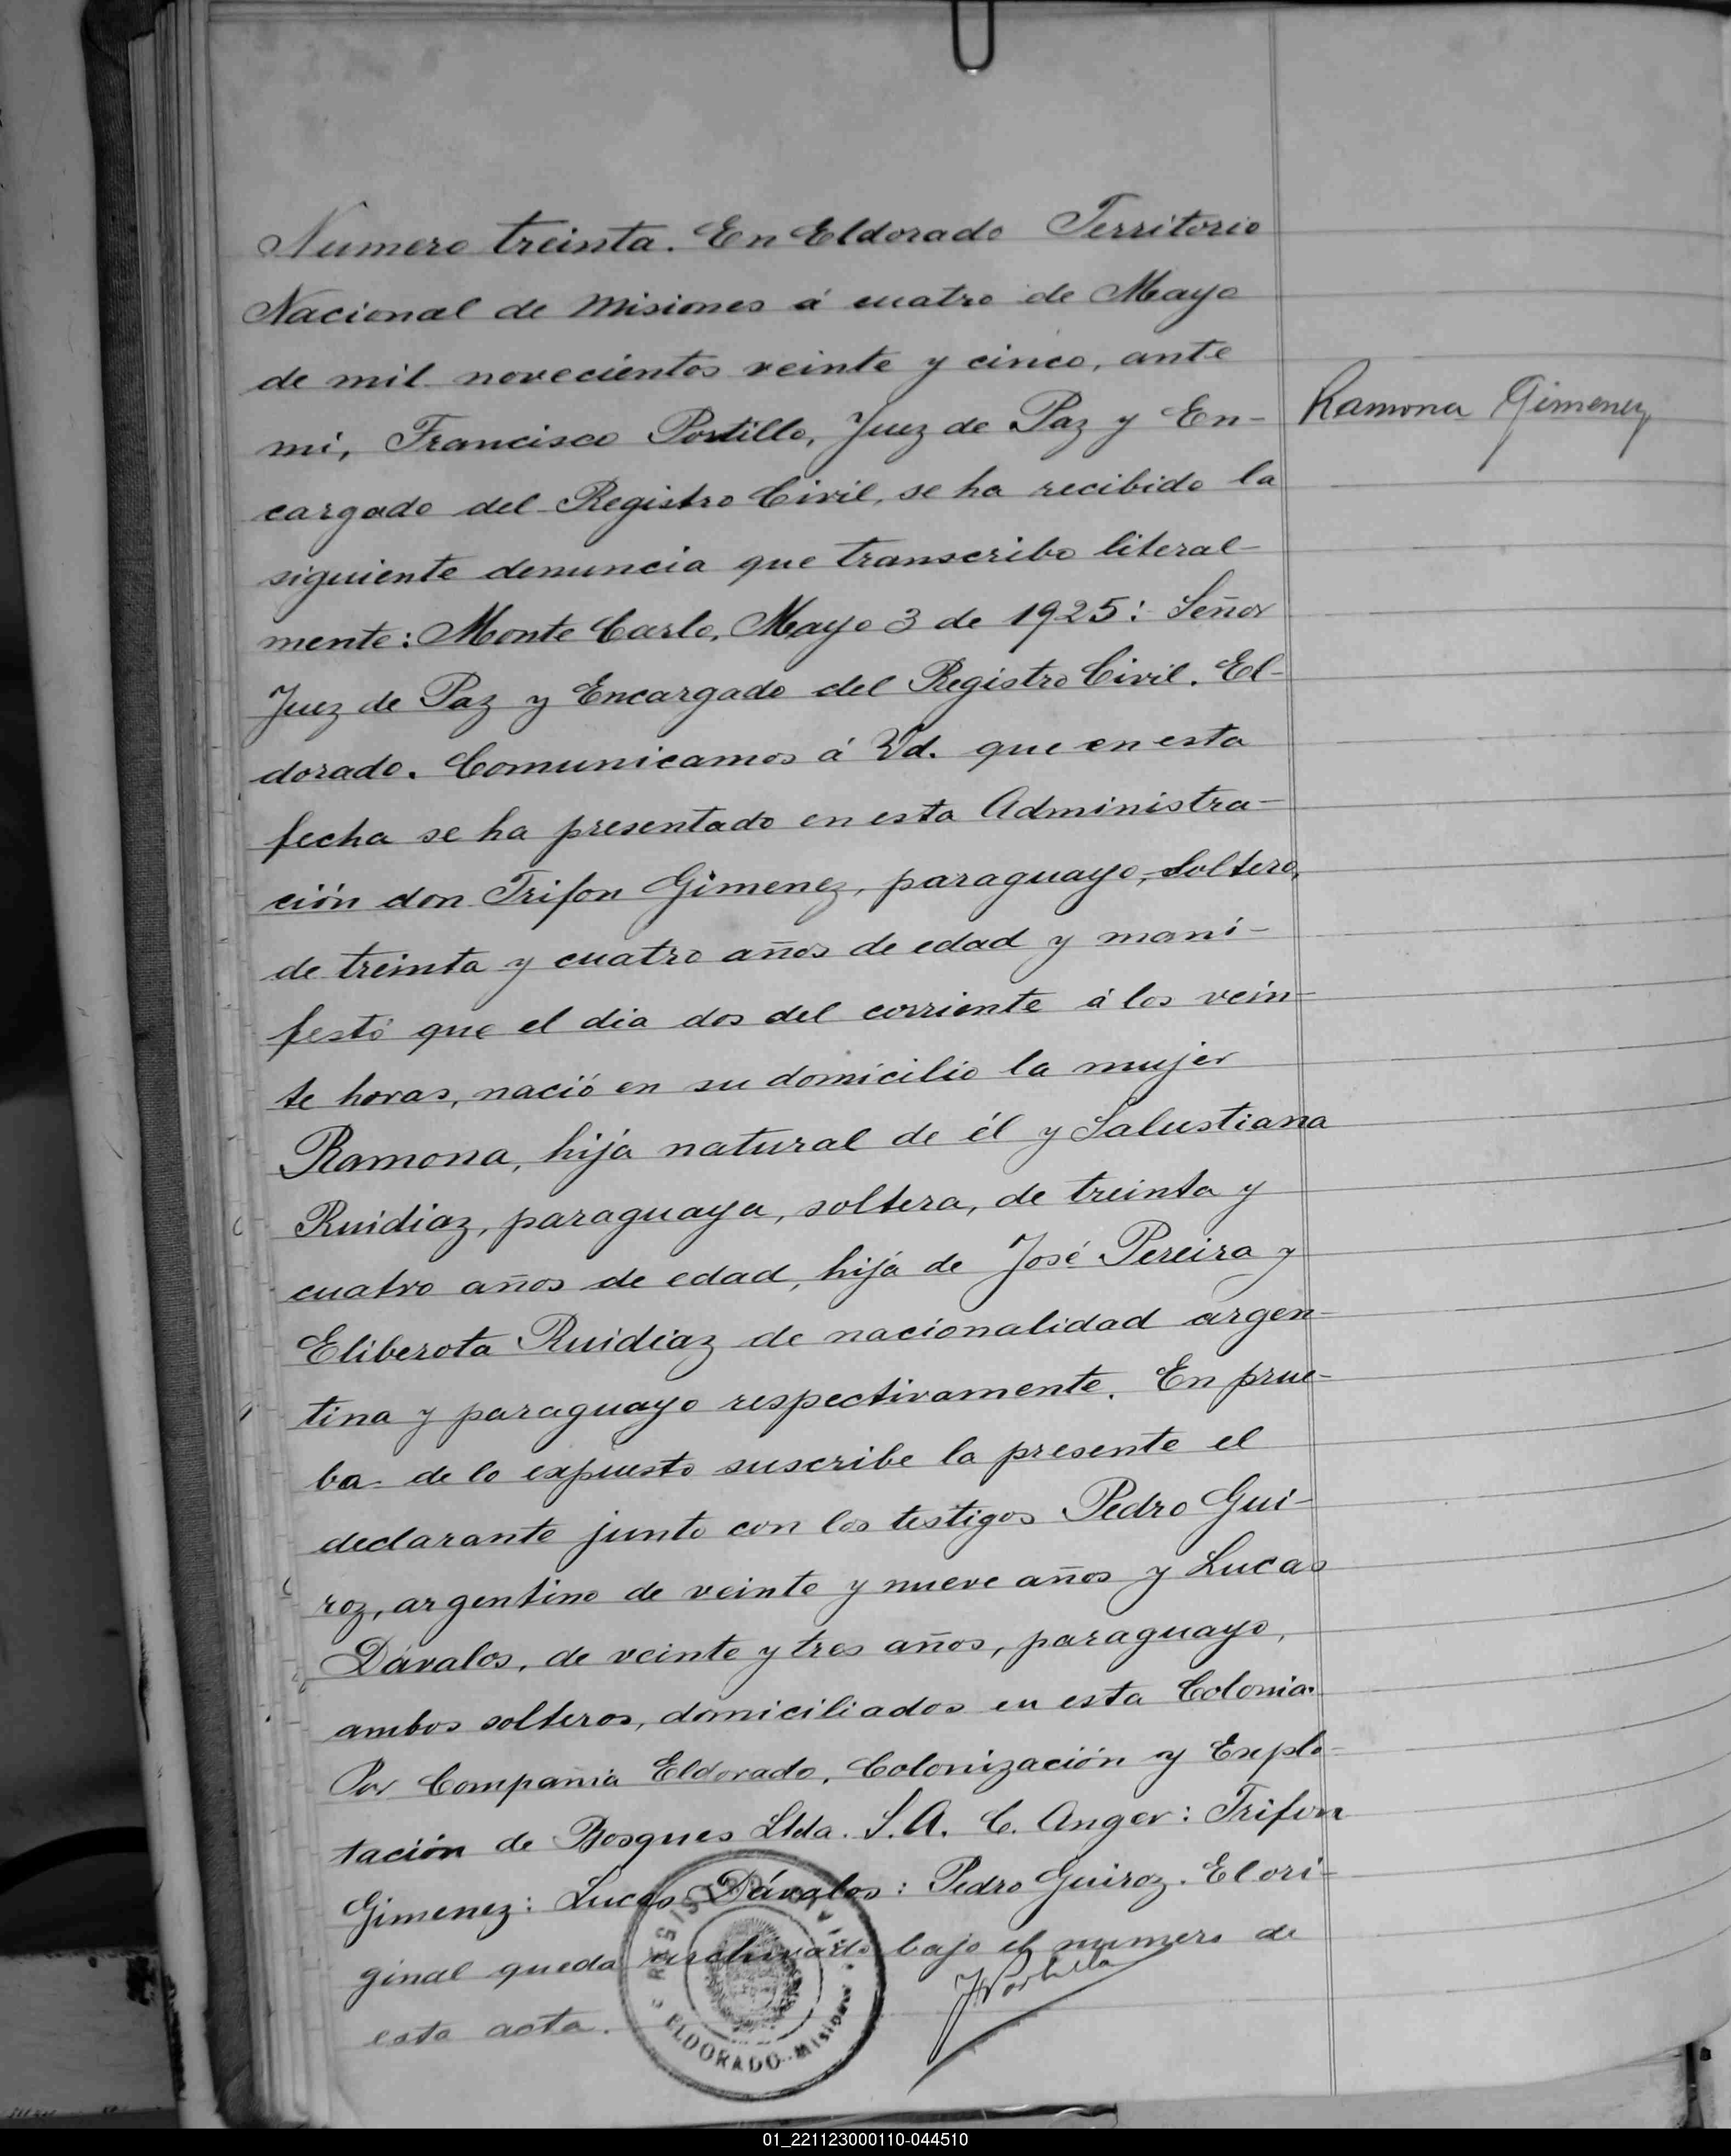 Numero treinta. En Eldorado Territorio
Nacional de Misiones á cuatro de Mayo
de mil novecientos veinte y cinco, ante
mi, Francisco Portillo, Juez de Paz y En-
Ramona Gimenez
cargado del Registro Civil, se ha recibido la
siguiente denuncia que transcribo literal-
mente: Monte Carlo, Mayo 3 de 1925: Señor
Juez de Paz y Encargado del Registro Civil. El-
dorado. Comunicamos á Vd. que en esta
fecha se ha presentado en esta Administra-
ción don Trifon Gimenez, paraguayo, soltero,
de treinta y cuatro años de edad y mani-
festó que el dia dos del corriente á los vein-
te horas, nació en su domicilio la mujer
Ramona, hija natural de él y Salustiana
Ruidiaz, paraguaya, soltera, de treinta y
cuatro años de edad, hija de José Pereira y
Eliberota Ruidiaz de nacionalidad argen-
tina y paraguayo respectivamente. En prue-
ba de lo expuesto suscribe la presente el
declarante junto con los testigos Pedro Gui-
roz, argentino de veinte y nueve años y Lucas
Dávalos, de veinte y tres años, paraguayo,
ambos solteros, domiciliados en esta Colonia.
Por Compañia Eldorado, Colonización y Explo-
tación de Bosques Ltda. S.A. C. Anger: Trifon
Gimenez: Lucas Dávalos: Pedro Guiroz. El ori-
ginal queda archivado bajo el numero de
esta acta.
FPortillo
REGISTRO CIVIL
ELDORADO - Misiones
01_221123000110-044510